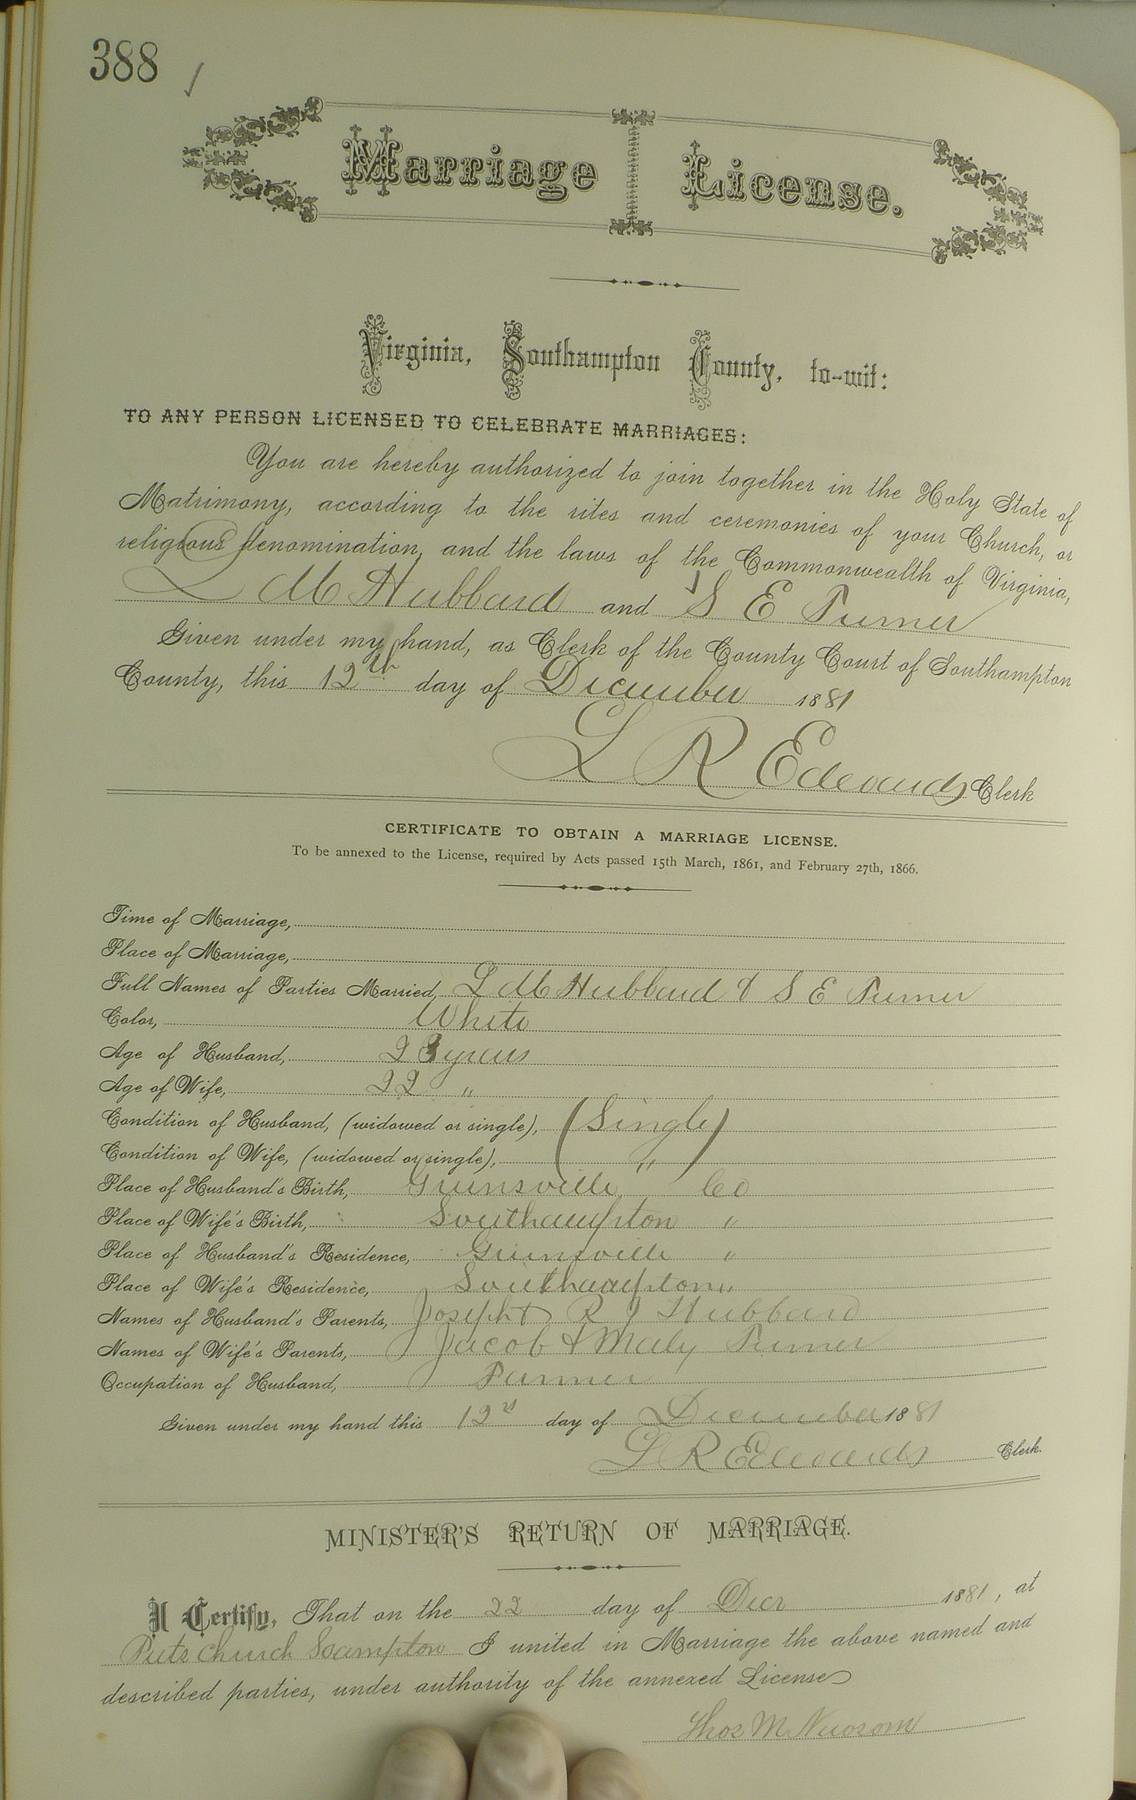 388
Marriage License.
Virginia, Southampton County, to-wit:
TO ANY PERSON LICENSED TO CELEBRATE MARRIAGES:
You are hereby authorized to join together in the Holy State of
Matrimony, according to the rites and ceremonies of your Church, or
religious denomination, and the laws of the Commonwealth of Virginia,
L M Hubbard and S E Turner
Given under my hand, as Clerk of the County Court of Southampton
County, this 12th day of December 1881
L R Edwards Clerk
CERTIFICATE TO OBTAIN A MARRIAGE LICENSE.
To be annexed to the License, required by Acts passed 15th March, 1861, and February 27th, 1866.
Time of Marriage,
Place of Marriage,
Full Names of Parties Married, L M Hubbard & S E Turner
Color, White
Age of Husband, 23 years
Age of Wife, 22 "
Condition of Husband, (widowed or single), (Single)
Condition of Wife, (widowed or single), "
Place of Husband's Birth, Greensville Co
Place of Wife's Birth, Southampton "
Place of Husband's Residence, Greensville "
Place of Wife's Residence, Southampton "
Names of Husband's Parents, Joseph & R J Hubbard
Names of Wife's Parents, Jacob & Turner
Occupation of Husband, Farmer
Given under my hand this 12 day of December 1881
L R Edwards Clerk.
MINISTER'S RETURN OF MARRIAGE.
I Certify, That on the 22 day of Decr 1881, at
Church I united in Marriage the above named and
described parties, under authority of the annexed License
Thos M Newsom